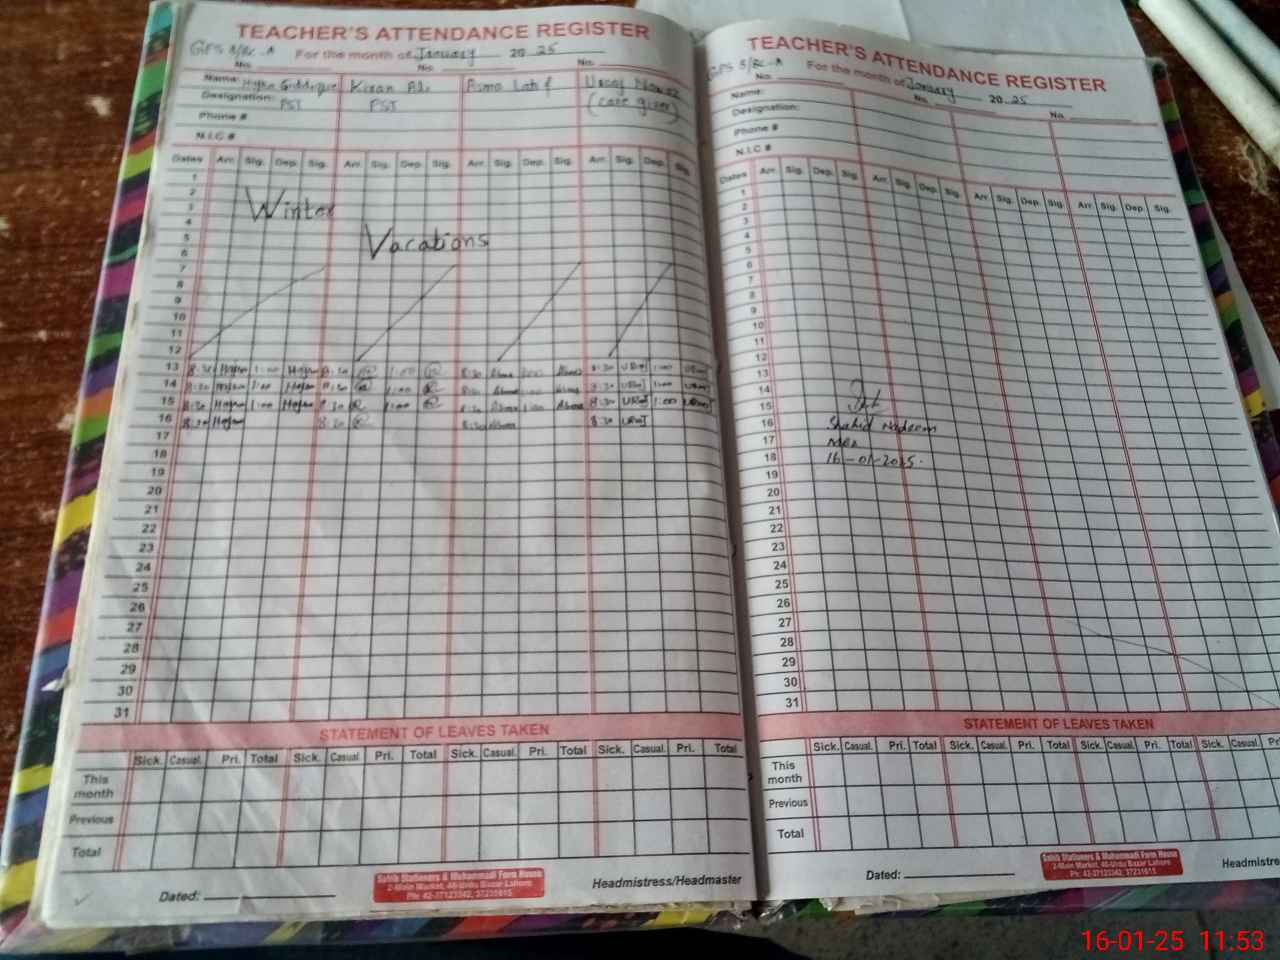 TEACHER'S ATTENDANCE REGISTER
For the month of January 20 25
No. No. No.
Name: Kiran Asma Latif
Designation: PST PST (care giver)
Phone #
N.I.C #
Dates Arr. Sig. Dep. Sig. Arr. Sig. Dep. Sig. Arr. Sig. Dep. Sig. Arr. Sig. Dep. Sig.
1
2
3
4
5
6
7
8
9
10
11
12
Winter
Vacations
13 8:30 1:00 8:30 1:00 8:30 Asma 1:00 Asma 8:30 1:00
14 8:30 1:00 8:30 1:00 8:30 Asma 1:00 Asma 8:30 1:00
15 8:30 1:00 8:30 1:00 8:30 Asma 1:00 Asma 8:30 1:00
16 8:30 8:30 8:30 Asma 8:30
17
18
19
20
21
22
23
24
25
26
27
28
29
30
31
STATEMENT OF LEAVES TAKEN
Sick. Casual. Pri. Total Sick. Casual. Pri. Total Sick. Casual. Pri. Total Sick. Casual. Pri. Total
This month
Previous
Total
Dated:
Sahib Stationers & Muhammadi Form House
2-Main Market, 46-Urdu Bazar Lahore
Headmistress/Headmaster
TEACHER'S ATTENDANCE REGISTER
For the month of January 20 25
No. No. No.
Name:
Designation:
Phone #
N.I.C #
Dates Arr. Sig. Dep. Sig. Arr. Sig. Dep. Sig. Arr. Sig. Dep. Sig. Arr. Sig. Dep. Sig.
1
2
3
4
5
6
7
8
9
10
11
12
13
14
15
16 Shahid Nadeem
17 MEA
18 16-01-2025.
19
20
21
22
23
24
25
26
27
28
29
30
31
STATEMENT OF LEAVES TAKEN
Sick. Casual. Pri. Total Sick. Casual. Pri. Total Sick. Casual. Pri. Total Sick. Casual.
This month
Previous
Total
Dated:
Sahib Stationers & Muhammadi Form House
2-Main Market, 46-Urdu Bazar Lahore
Headmistre
16-01-25 11:53